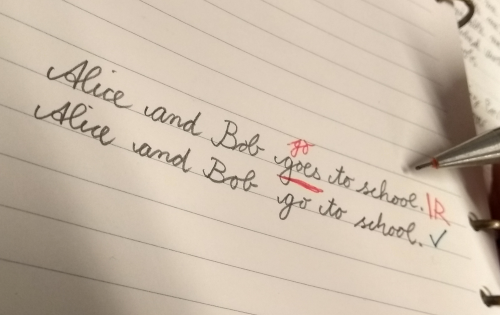 go
Alice and Bob goes to school. 1R
Alice and Bob go to school. ✓